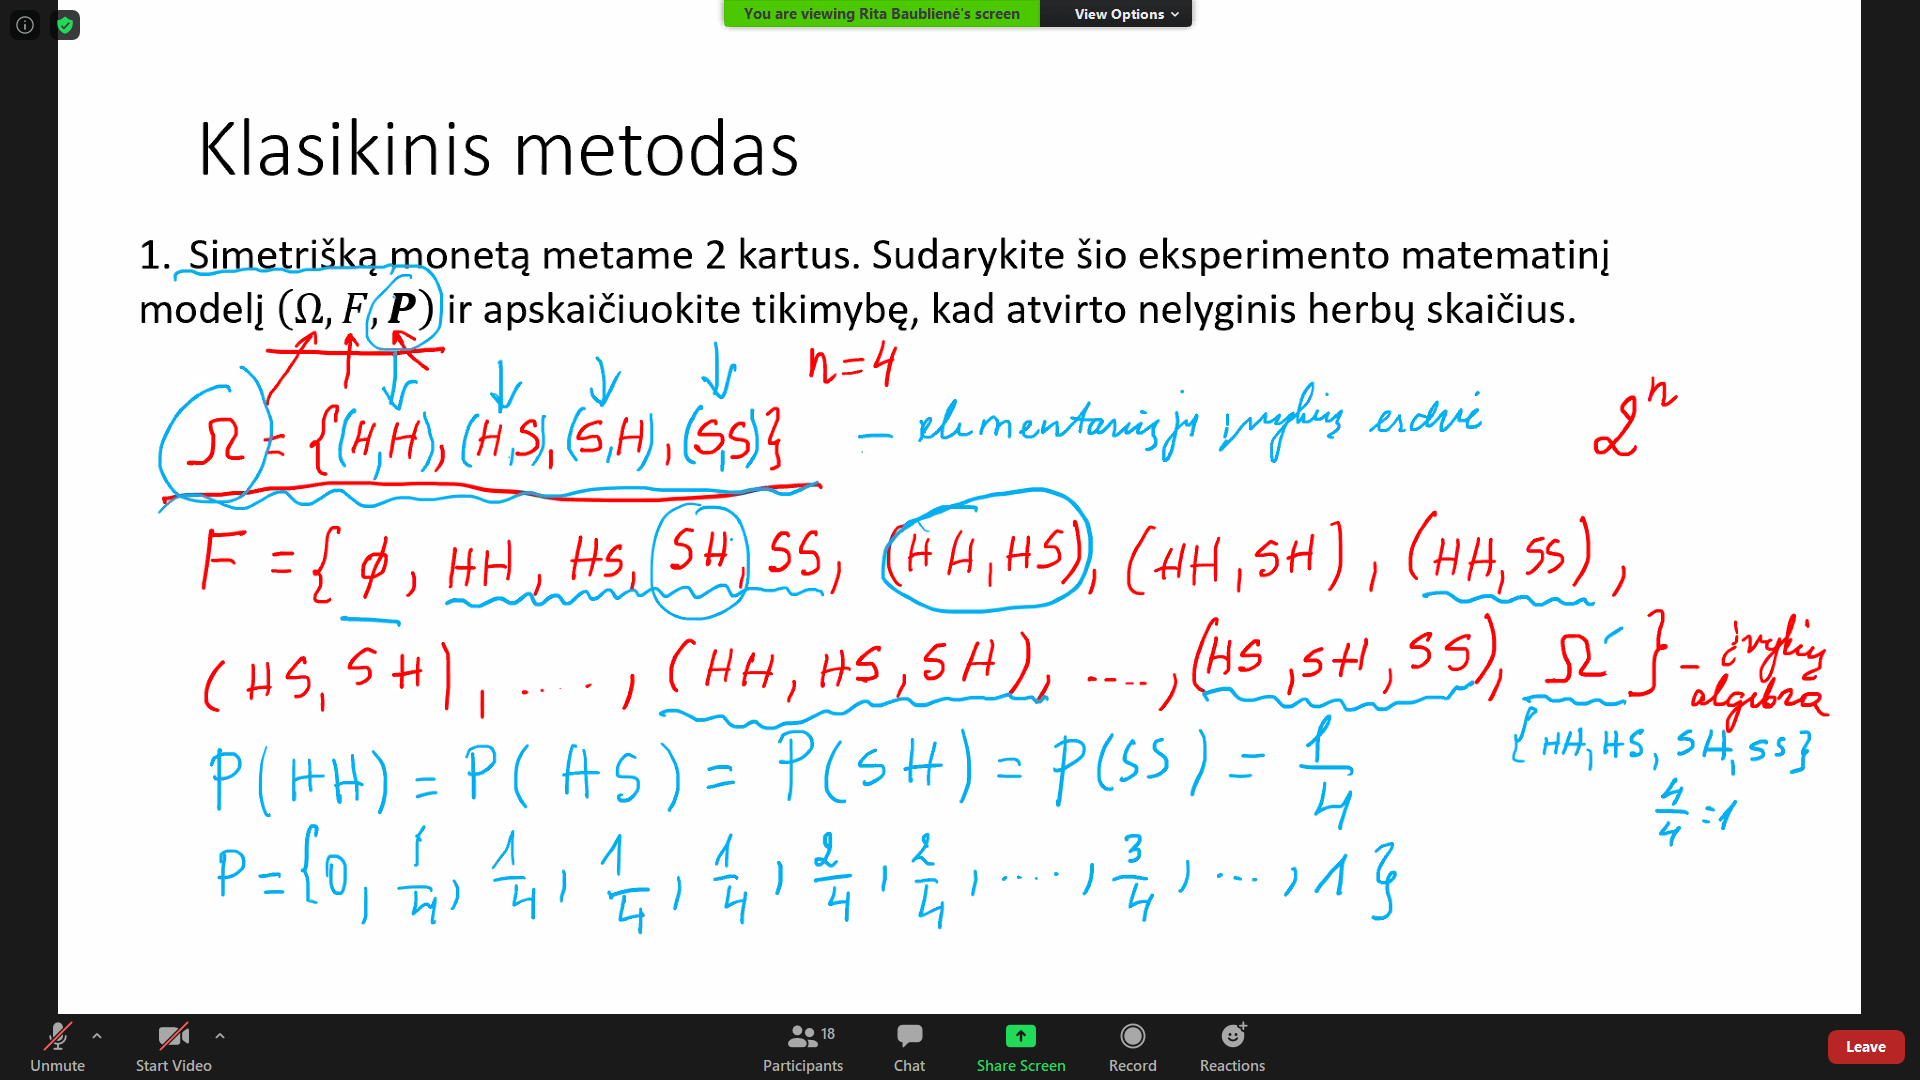 You are viewing Rita Baublienė's screen View Options
Klasikinis metodas
1. Simetrišką monetą metame 2 kartus. Sudarykite šio eksperimento matematinį
modelį (Ω, F, P) ir apskaičiuokite tikimybę, kad atvirto nelyginis herbų skaičius.
n=4
Ω = {(H,H), (H,S), (S,H), (S,S)} – elementariųjų įvykių erdvė 2ⁿ
F = { ϕ, HH, HS, SH, SS, (HH,HS), (HH,SH), (HH,SS),
(HS,SH), ...., (HH,HS,SH), ...., (HS,SH,SS), Ω } – įvykių
algebra
{HH,HS,SH,SS}
P(HH) = P(HS) = P(SH) = P(SS) = 1/4
4/4 = 1
P = {0, 1/4, 1/4, 1/4, 1/4, 2/4, 2/4, ...., 3/4, ..., 1}
Unmute Start Video Participants 18 Chat Share Screen Record Reactions Leave